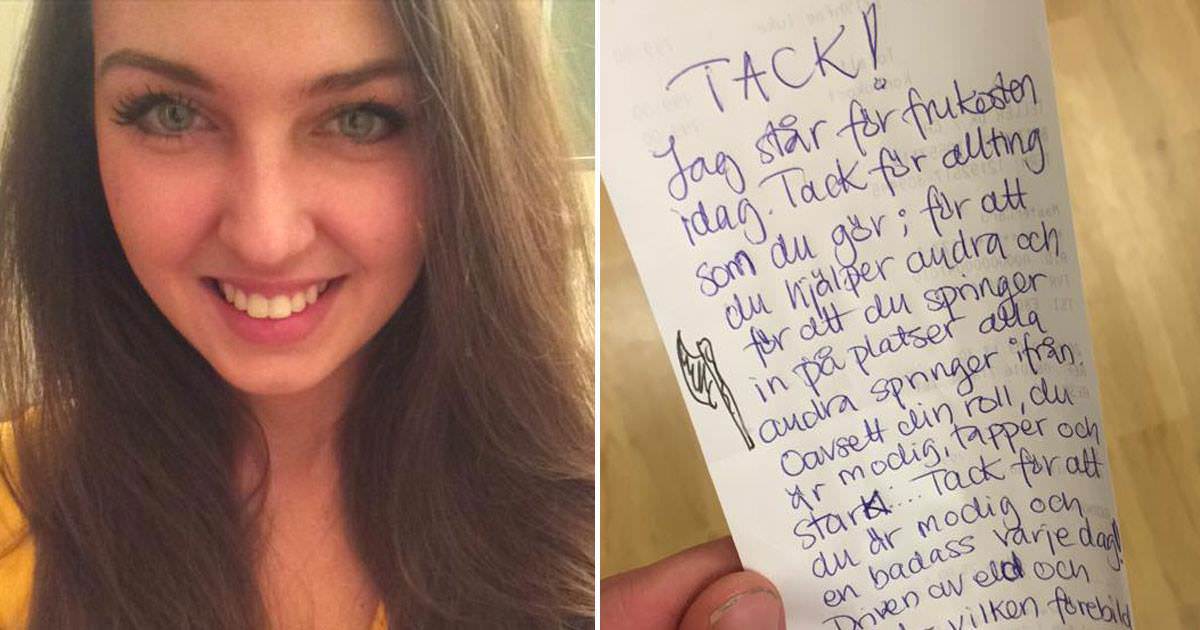 TACK!
Jag står för frukosten
idag. Tack för allting
som du gör; för att
du hjälper andra och
för att du springer
in på platser alla
andra springer ifrån.
Oavsett din roll, du
är modig, tapper och
stark... Tack för att
du är modig och
en badass varje dag!
Driven av eld och
vilken förebild